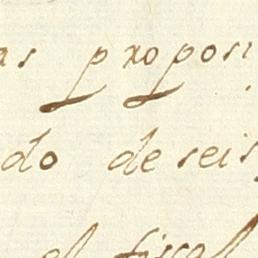 as proposi
do de seis
el fiscal